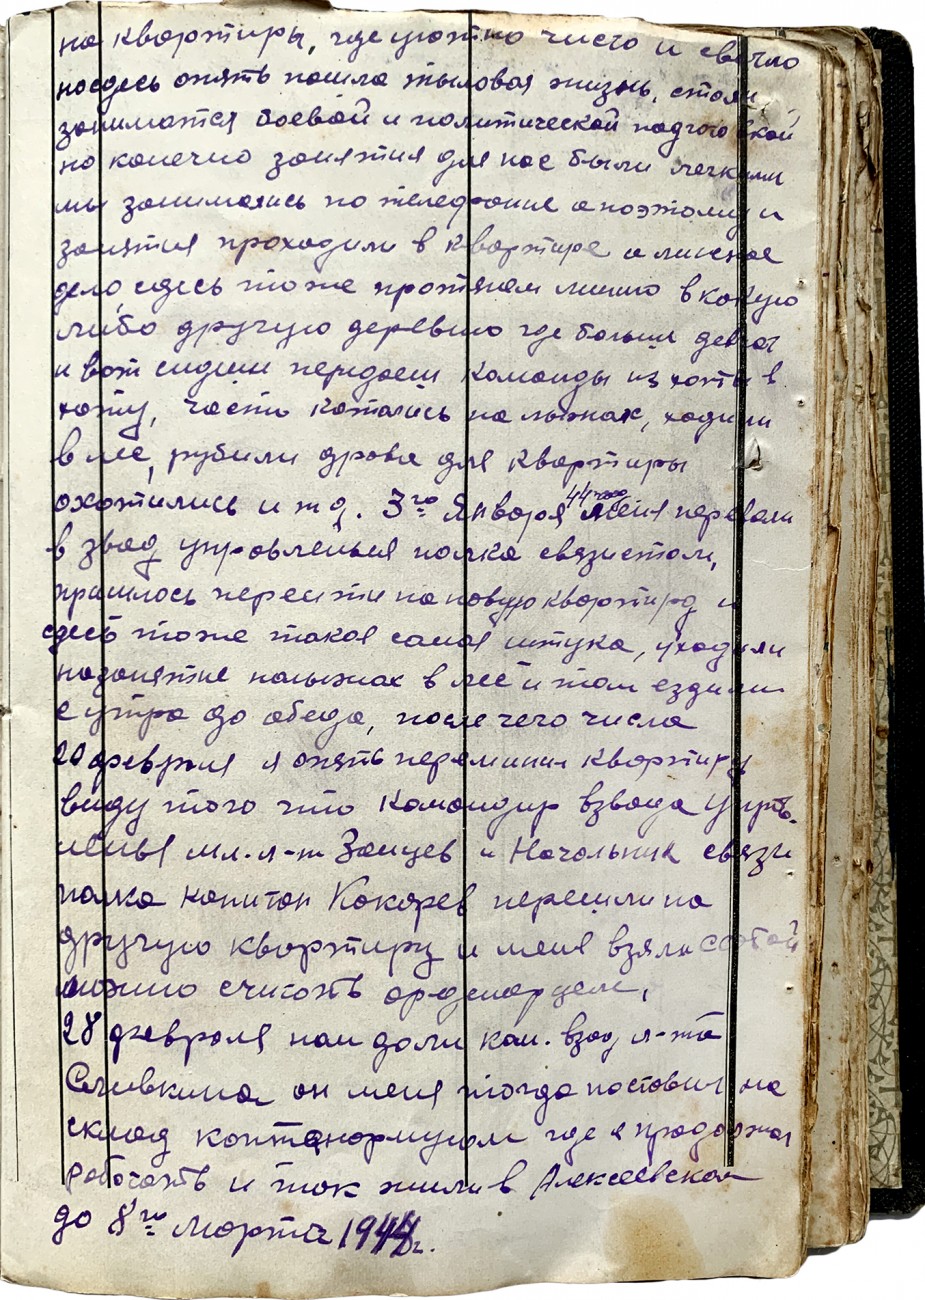 на квартиры, где уютно чисто и светло
носдесь опять пошла тыловая жизнь, стали
заниматся боевой и политической подгото  кой
но конечно занятия для нас были легкими
мы занимались по телефонии а поэтому и
занятия проходили в квартире а линейное
дело, сдесь тоже протянем линию в какую
либо другую деревню где больше девчат
и вот сидим передаем команды из хоты в
хоту, часто катались на лыжах, ходили
в лес, рубили дрова для квартиры
охотились и т д. 3го Января 44 года меня перевели
в звод управленья полка связистом,
пришлось перейти на новую квартиру и
сдесь тоже такая самая штука, уходили
назанятие налыжах в лес и там ездили
с утра до обеда, после чего числа
20 февраля я опять переминил квартиру
виду того что командир взвода управ-
ленья мл. л-т Зайцев и Начальник связи
полка капитан Кокарев перешли на
другую квартиру и меня взяли с собой
можно считать ординарцем,
28 февраля нам дали ком. взод л-та
Сливкина он меня тогда поставил на
склад где я продолжал
работать и так жили в Алексеевской
до 8го марта 1944г.